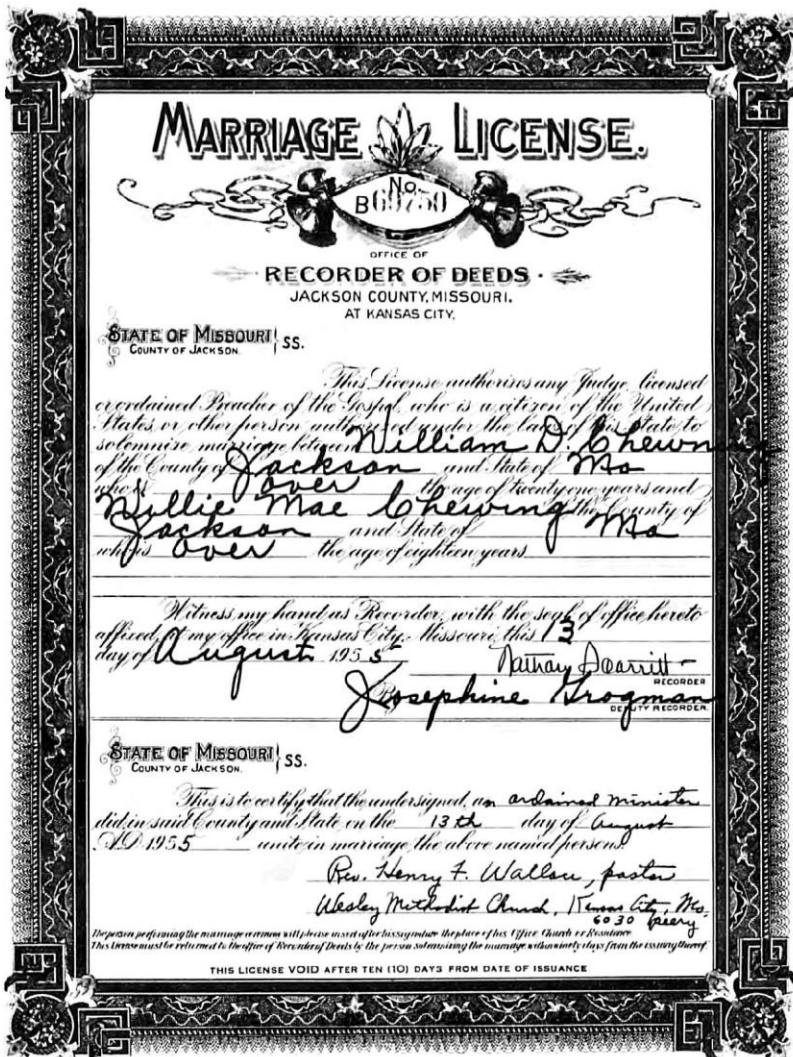 MARRIAGE LICENSE.
No.
B69750
OFFICE OF
RECORDER OF DEEDS
JACKSON COUNTY, MISSOURI.
AT KANSAS CITY.
STATE OF MISSOURI
COUNTY OF JACKSON. } SS.
This License authorizes any Judge, licensed
or ordained Preacher of the Gospel, who is a citizen of the United
States, or other person authorized under the laws of this State, to
solemnize marriage between William D. Chewning
of the County of Jackson and State of Mo
who is over the age of twenty one years and
Willie Mae Chewing the County of
Jackson and State of Mo
who is over the age of eighteen years
Witness my hand as Recorder, with the seal of office hereto
affixed, at my office in Kansas City, Missouri, this 13
day of August 1955 Nathan Scarritt
RECORDER
Josephine Grogman
DEPUTY RECORDER.
STATE OF MISSOURI
COUNTY OF JACKSON. } SS.
This is to certify that the undersigned, an ordained minister
did in said County and State on the 13th day of August
A.D. 1955 unite in marriage the above named persons.
Rev. Henry F. Wallace, pastor
Wesley Methodist Church, Kansas City, Mo.
6030 Peery
The person performing the marriage ceremony will please insert after his signature the place of his Office, Church or Residence
This License must be returned to the office of Recorder of Deeds by the person solemnizing the marriage within ninety days from the issuing thereof.
THIS LICENSE VOID AFTER TEN (10) DAYS FROM DATE OF ISSUANCE